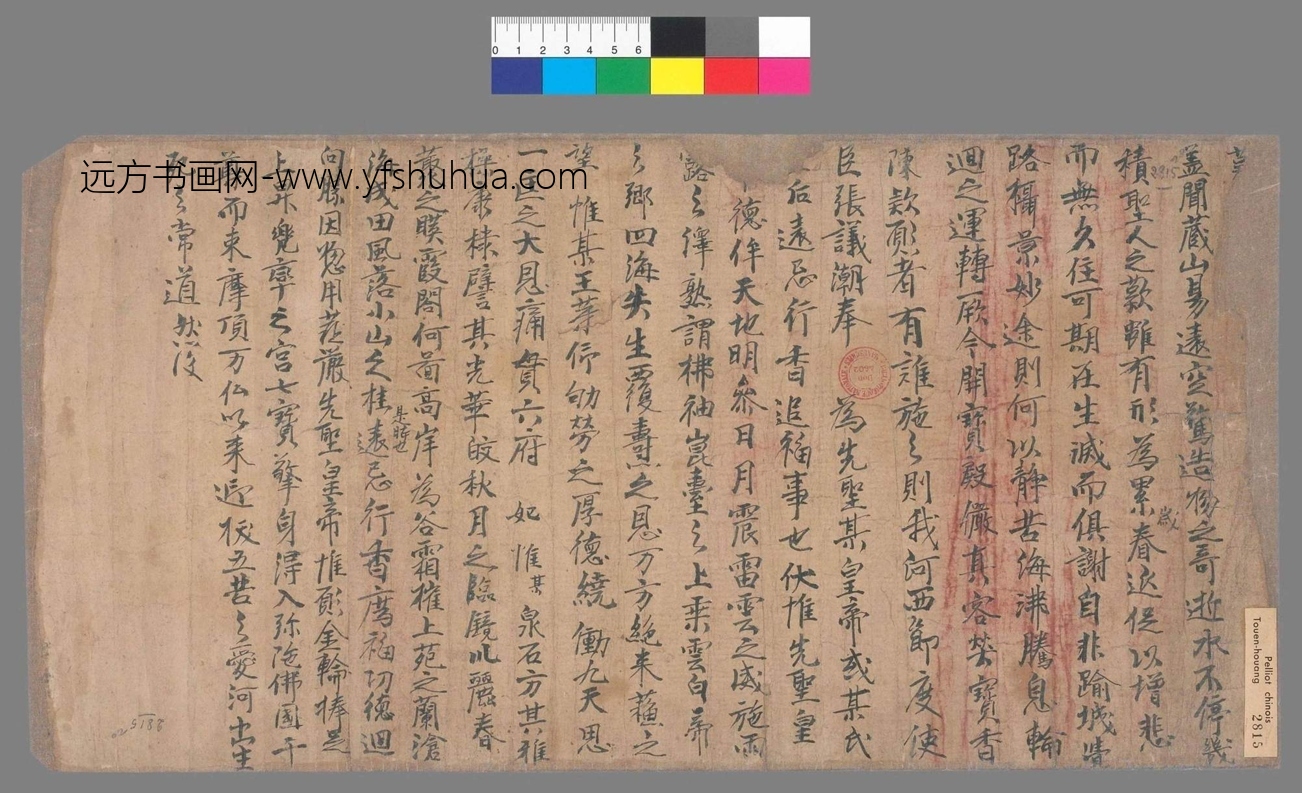 蓋聞蔵山易遠空驚造物之哥逝水不停幾
積聖人之歎雖有形為累春近促以增悲
歳
而無久住可期在生滅而俱謝自非踰城
路攝景妙途則何以靜苦海沸騰息輪
迴之運轉厥今開寶殿儼真容焚寶香
陳欵願者有誰施之則我河西節度使
臣張議潮奉 為先聖某皇帝或某氏
后遠忌行香追福事也伏惟先聖皇
德侔天地明参日月震雷雲之威施雨
露之澤熟謂拂袖崑臺之上乗雲白帝
之鄉四海失生覆燾之恩万方絶来蘓之
望惟某王等停劬勞之厚德繞働九天思
一之大恩痛貫六府 妃 惟某泉石方其雅
棣譬其光華皎秋月之臨鏡此麗春
之睽霞閣何啚高岸為谷霜摧上苑之蘭滄
海成田風落小山之桂遠忌行香薦福切德迴
是時也
向勝因惣用荘嚴先聖皇帝惟願金輪捧足
上昇覺率之宮七寶擎身得入弥陁佛國千
而来摩頂万仏以来迎校五苦之愛河出生
之常道然後
远方书画网-www.yfshuhua.com
0 1 2 3 4 5 6
Pelliot chinois
Touen-houang 2815
2815
5188